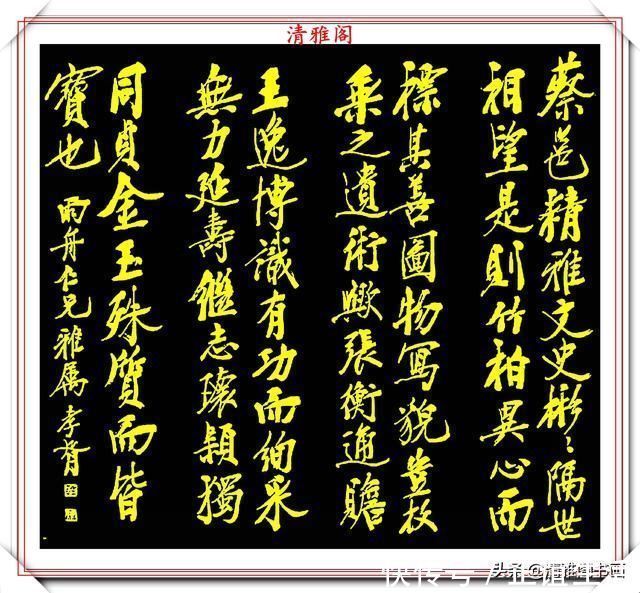 清雅阁
蔡邕精雅文史彬〻隔世
相望是則竹柏異心而
標其善圖物寫貌豈枚
乘之遺術歟張衡通贍
王逸博識有功而絢采
無力延壽繼志瓌穎獨
同貞金玉殊質而皆
寶也 雨舟仁兄雅屬 孝胥
快传号